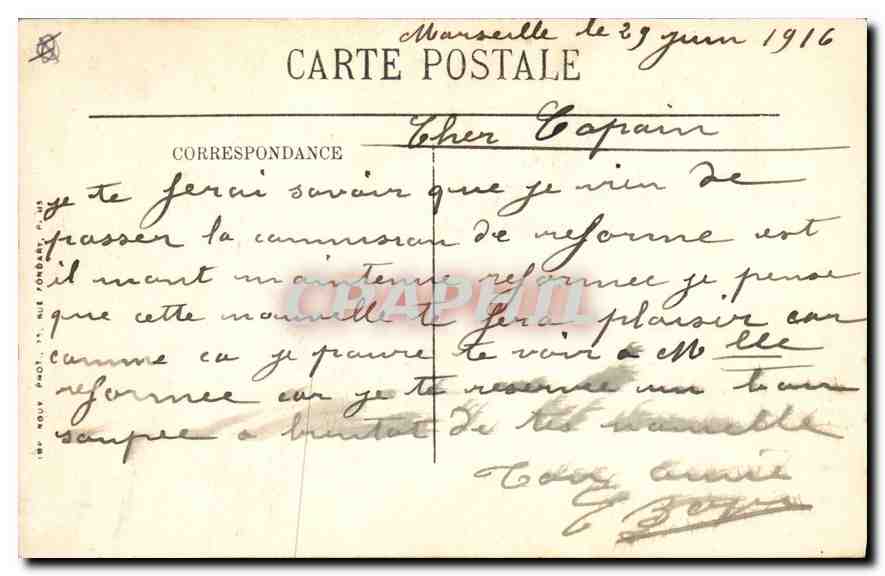 Marseille le 29 juin 1916
CARTE POSTALE
Cher Copain
CORRESPONDANCE
je te ferai savoir que je vien de
passer la commission de reforme est
il mont maintenue reformee je pense
que cette nouvelle te fera plaisir car
comme ca je poure te voir a Mlle
reformee car je te reserve un bon
soupee a bientot de tes nouvelle
Ton amie
IMP. NOUV. PHOT., RUE FONDARY, P
CPAPHIL